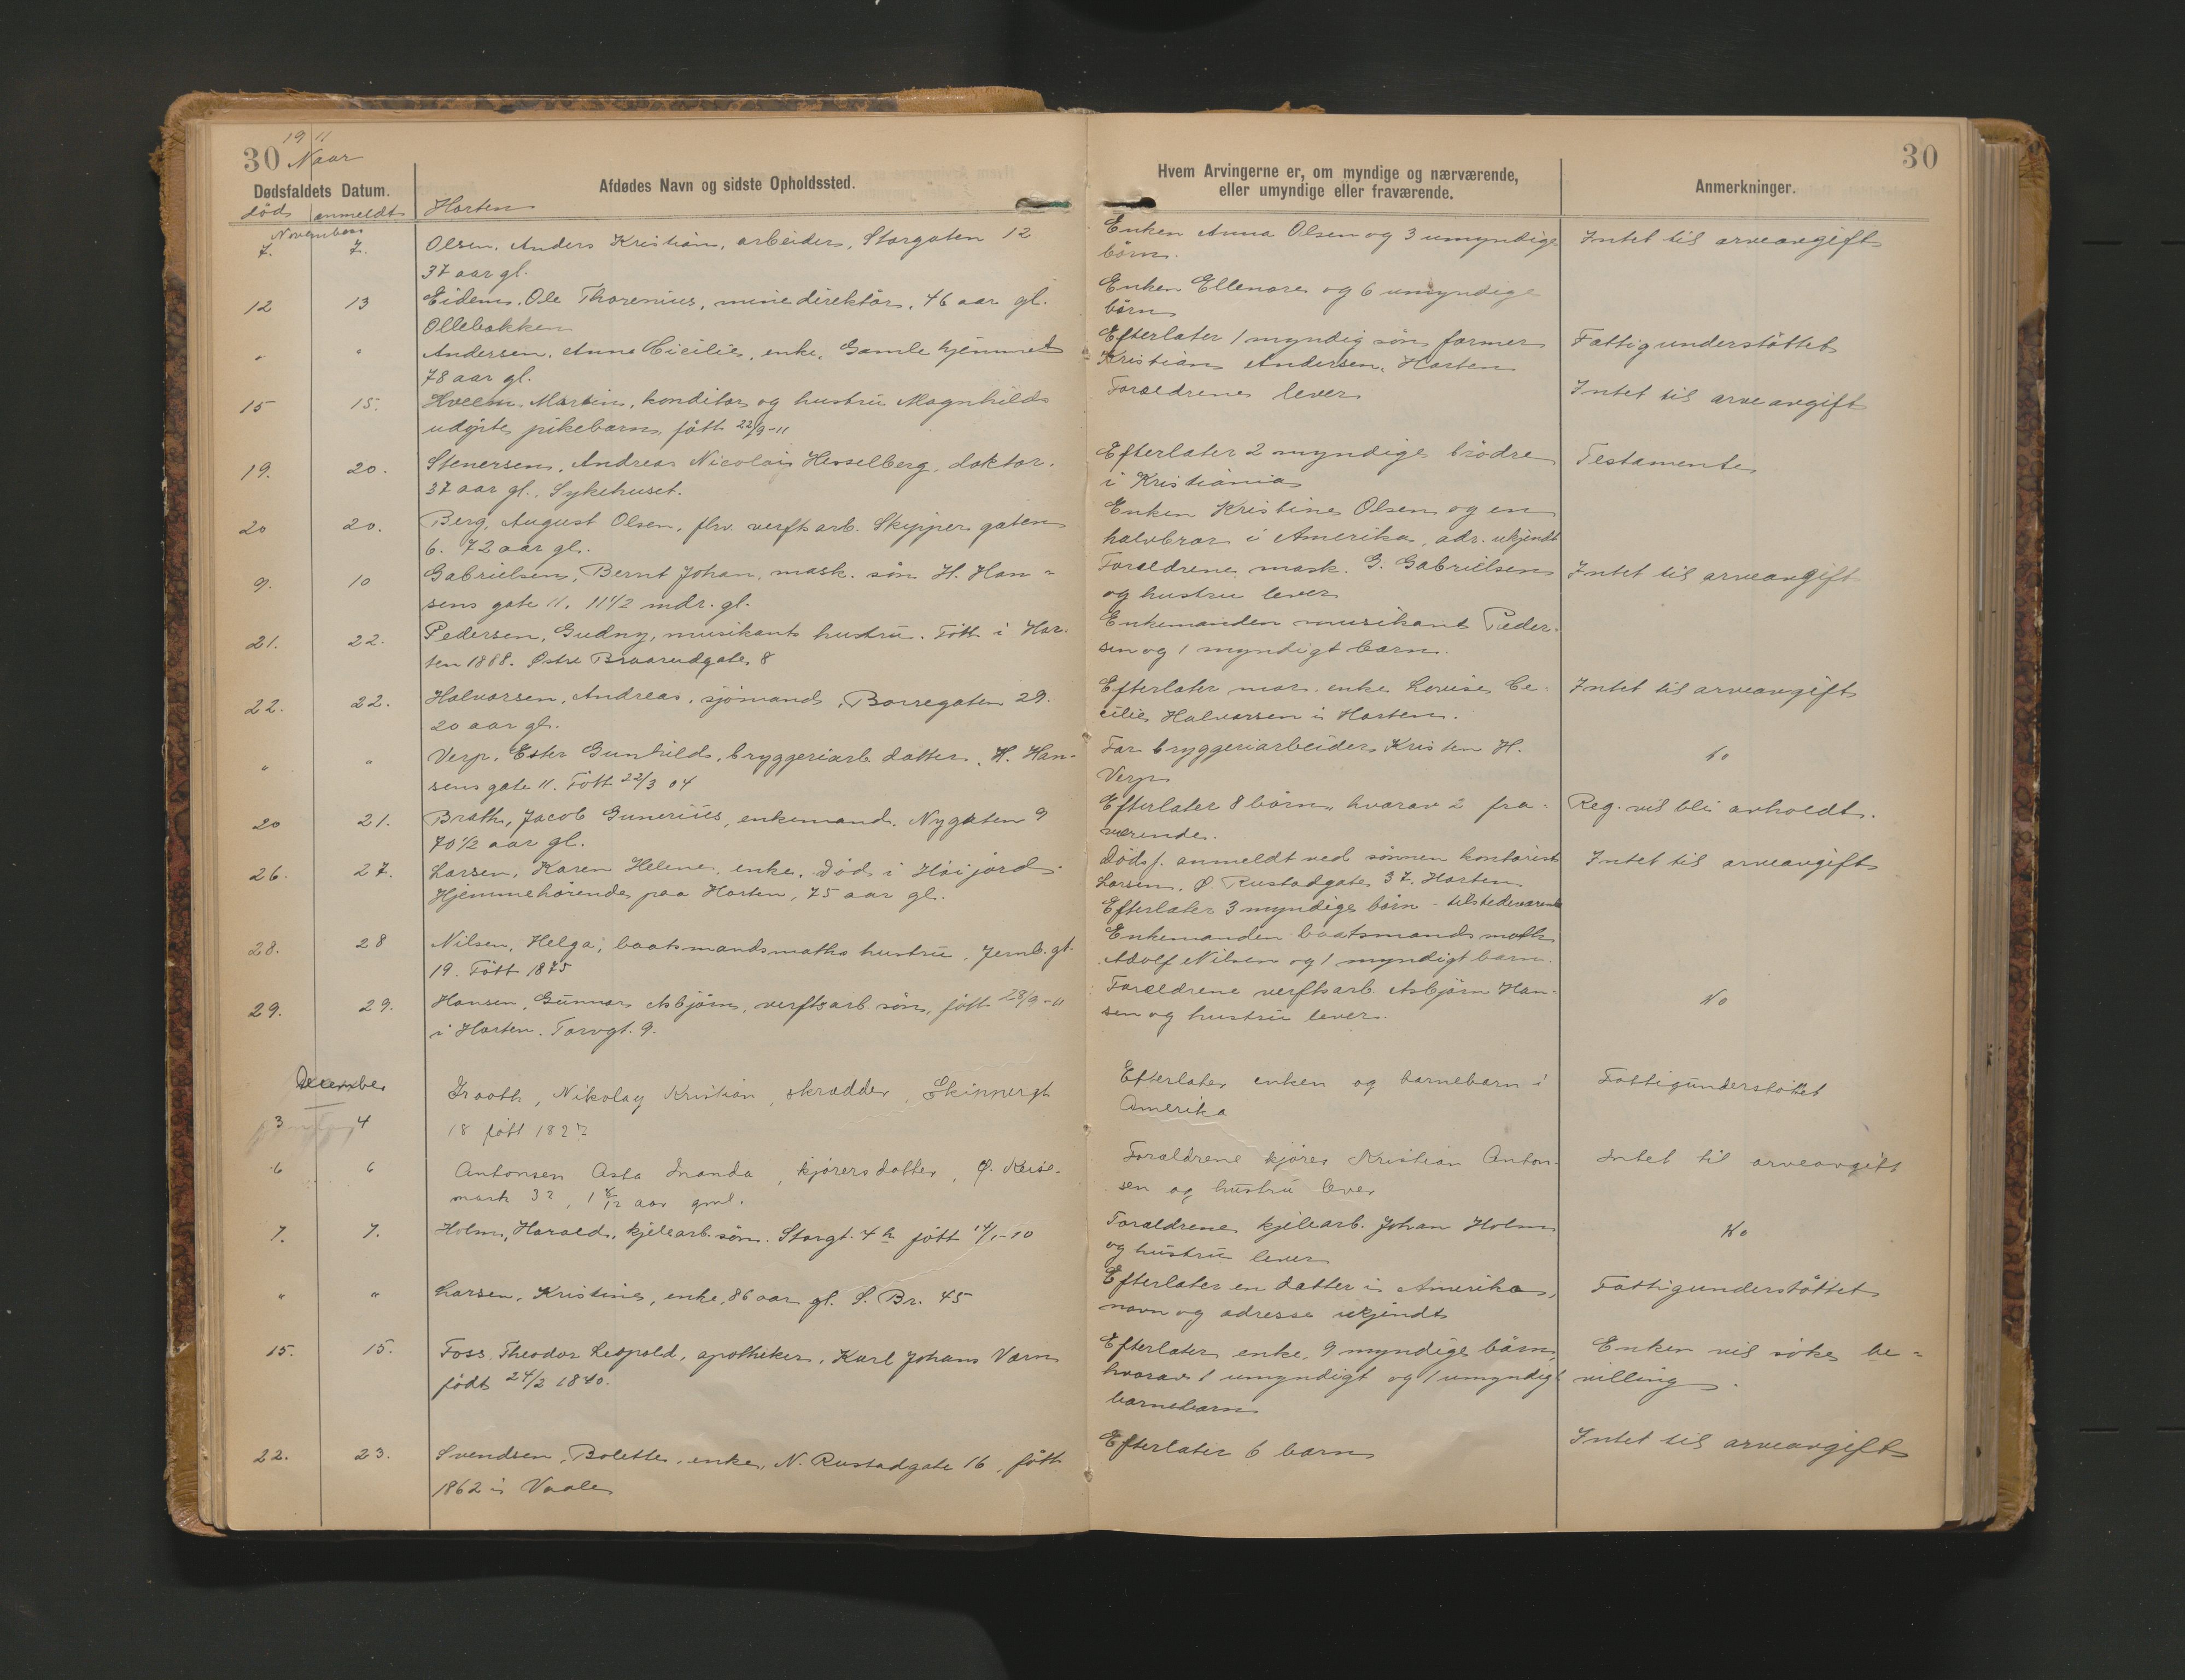 30
1911
Naar
Dødsfaldets Datum.
død anmeldt
Afdødes Navn og sidste Opholdssted.
Horten
Hvem Arvingerne er, om myndige og nærværende,
eller umyndige eller fraværende.
Anmerkninger.
30
November
7. 7. Olsen, Anders Kristian, arbeider, Storgaten 12
37 aar gl.
Enken Anna Olsen og 3 umyndige
børn.
Intet til arveavgift
12 13 Eidem, Ole Thorenius, minedirektør, 46 aar gl.
Ollebakken
Enken Ellenore og 6 umyndige
børn
" " Andersen, Anne Cicilie, enke, Gamlehjemmet
78 aar gl.
Efterlater 1 myndig søn former
Kristian Andersen, Horten
Fattigunderstøttet
15 15. Martin, konditor og hustru Magnhilds
udøpte pikebarn, født 22/9-11
Forældrene lever
Intet til arveavgift
19. 20. Stenersen, Andreas Nicolai Hesselberg, doktor.
37 aar gl., Sykehuset.
Efterlater 2 myndige brødre
i Kristiania
Testamente
20 20. Berg, August Olsen, fhv. verftsarb. Skippergaten
6. 72 aar gl.
Enken Kristine Olsen og en
halvbror i Amerika, adr. ukjendt
9. 10 Gabrielsen, Bernt Johan, mask. søn H. Han-
sens gate 11. 11 1/2 mdr. gl.
Forældrene mask. G. Gabrielsen
og hustru lever
Intet til arveavgift
21. 22. Pedersen, Gudny, musikants hustru. Født i Hor-
ten 1888. Østre Braarudgate 8
Enkemanden musikant Peder-
sen og 1 myndigt barn.
22. 22. Halvorsen, Andreas, sjømand, Borregaten 29.
20 aar gl.
Efterlater mor, enke Lovise Ce-
cilie Halvorsen i Horten.
Intet til arveavgift
" " Verp, Ester Gunhild, bryggeriarb. datter, H. Han-
sens gate 11. Født 22/3 04
Far bryggeriarbeider Kristen H.
Verp
do
20 21. Bråth, Jacob Gunerius, enkemand. Nygaten 9
70 1/2 aar gl.
Efterlater 8 børn, hvorav 2 fra-
værende.
Reg. vil bli avholdt.
26. 27. Larsen, Karen Helene, enke, død i Høijord.
Hjemmehørende paa Horten, 75 aar gl.
Dødsf. anmeldt ved sønnen kontorist
Larsen, Ø. Rustadgate 37. Horten
Efterlater 3 myndige børn - tilstedeværende
Intet til arveavgift
28. 28 Nilsen, Helga, baatsmandsmaths hustru, Jernb.gt.
19. Født 1875
Enkemanden baatsmandsmath
Adolf Nilsen og 1 myndigt barn.
29. 29. Hansen, Gunnar Asbjørn, verftsarb. søn, født 28/9-11
i Horten. Torvgt. 9.
Forældrene verftsarb. Asbjørn Han-
sen og hustru lever.
No
December
3 4 Nikolay Kristian, skrædder, Skippergt
18 født 1827
Efterlater enken og barnebarn i
Amerika
Fattigunderstøttet
6 6 Antonsen Asta Inanda, kjørers datter, Ø. Keise-
mark 32, 1 aar gml.
Forældrene kjører Kristian Anton-
sen og hustru lever
Intet til arveavgift
7. 7. Holm, Harald, kjelearb. søn. Storgt. 4 b født 14/1-10
Forældrene kjelearb. Johan Holm
og hustru lever
No
" " Larsen, Kristine, enke, 86 aar gl. S. Br. 45
Efterlater en datter i Amerika,
navn og adresse ukjendt
Fattigunderstøttet
15. 15. Foss, Theodor Leopold, apotheker, Karl Johans Værn
født 24/2 1840.
Efterlater enke, 9 myndige børn,
hvorav 1 umyndigt og 1 umyndigt
barnebarn
Enken vil søke be-
villing.
22. 23. Svendsen, Bolette, enke, N. Rustadgate 16, født
1862 i Vaale
Efterlater 6 barn
Intet til arveavgift